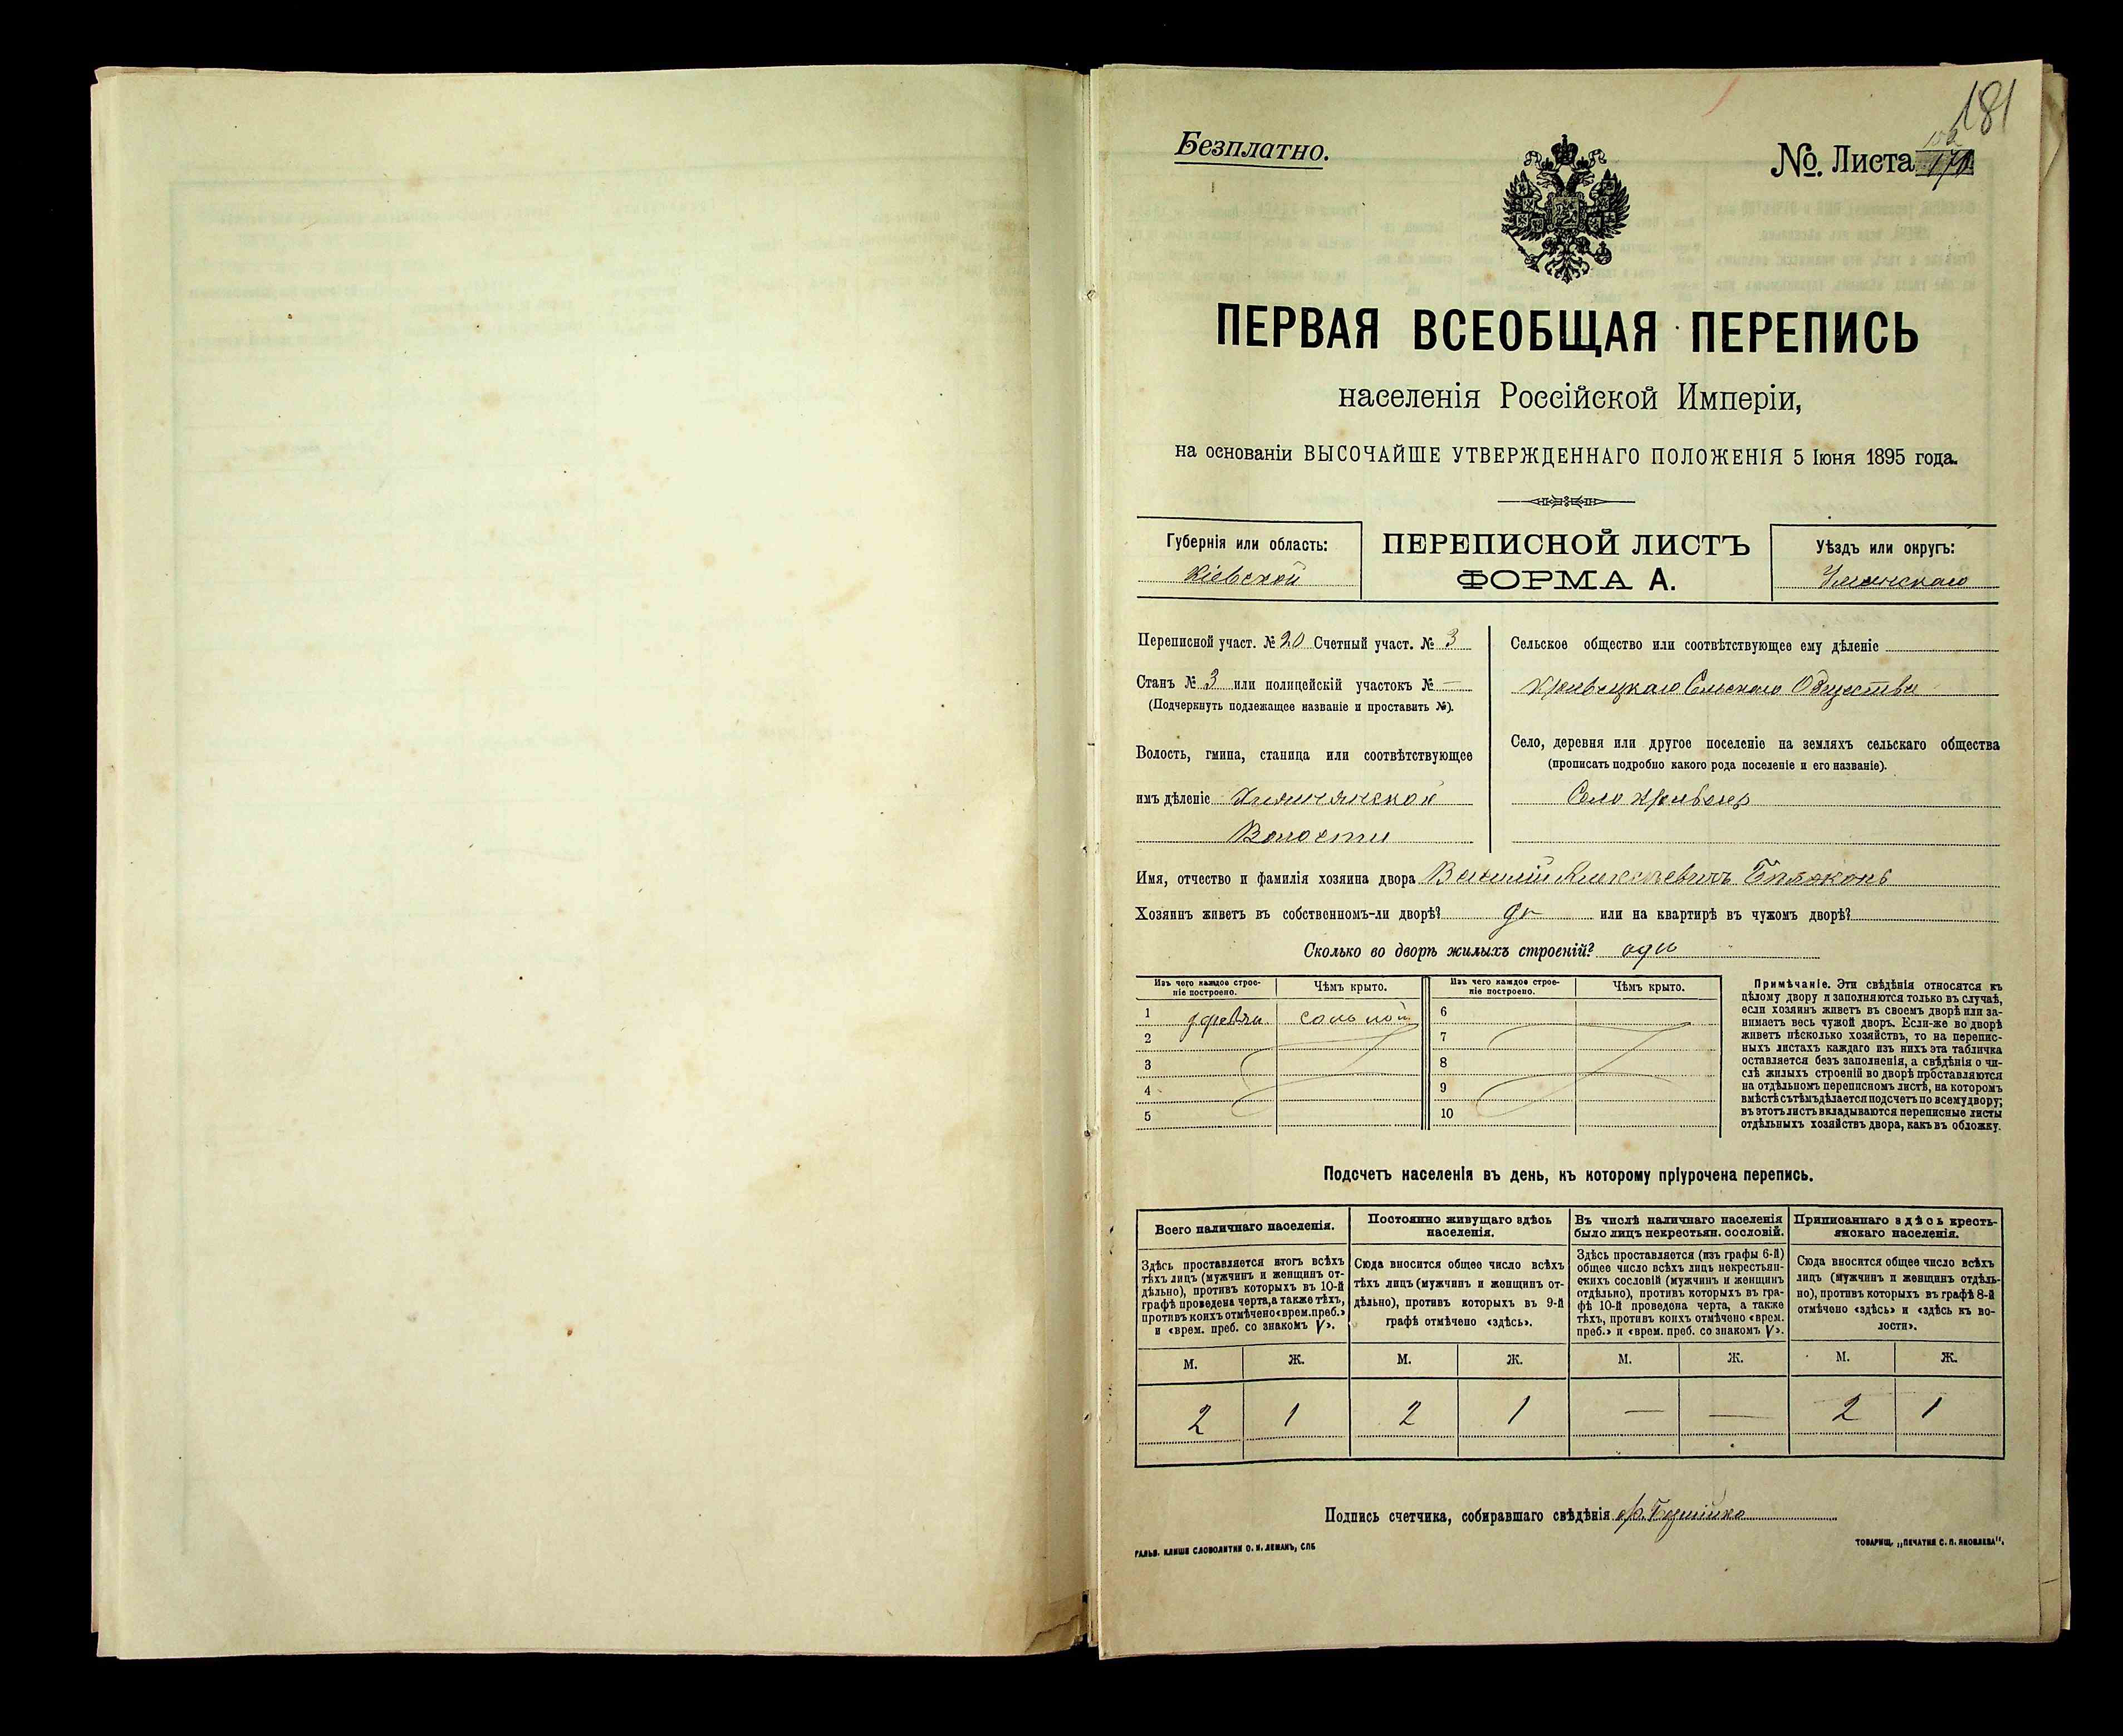 181
Безплатно.
№. Листа
ПЕРВАЯ ВСЕОБЩАЯ ПЕРЕПИСЬ
населенія Россійской Имперіи,
на основаніи ВЫСОЧАЙШЕ УТВЕРЖДЕННАГО ПОЛОЖЕНІЯ 5 Іюня 1895 года.
Губернія или область:
Кіевской
ПЕРЕПИСНОЙ ЛИСТЪ
ФОРМА А.
Уѣздъ или округъ:
Уманскаго
Переписной участ. № 20 Счетный участ. № 3
Станъ № 3 или полицейскій участокъ № —
(Подчеркнуть подлежащее названіе и проставить №).
Волость, гмина, станица или соотвѣтствующее
имъ дѣленіе
Волости
Сельское общество или соотвѣтствующее ему дѣленіе
Сельскаго Общества
Село, деревня или другое поселеніе на земляхъ сельскаго общества
(прописать подробно какого рода поселеніе и его названіе).
Село
Имя, отчество и фамилія хозяина двора Василій Алексѣевичъ
Хозяинъ живетъ въ собственномъ-ли дворѣ? да или на квартирѣ въ чужомъ дворѣ?
Сколько во дворѣ жилыхъ строеній?
Изъ чего каждое строе-
ніе построено.
Чѣмъ крыто.
Изъ чего каждое строе-
ніе построено.
Чѣмъ крыто.
1 соломой 6
2 7
3 8
4 9
5 10
Примѣчаніе. Эти свѣдѣнія относятся къ
цѣлому двору и заполняются только въ случаѣ,
если хозяинъ живетъ въ своемъ дворѣ или за-
нимаетъ весь чужой дворъ. Если-же во дворѣ
живетъ нѣсколько хозяйствъ, то на перепис-
ныхъ листахъ каждаго изъ нихъ эта табличка
оставляется безъ заполненія, а свѣдѣнія о чи-
слѣ жилыхъ строеній во дворѣ проставляются
на отдѣльномъ переписномъ листѣ, на которомъ
вмѣстѣ съ тѣмъ дѣлается подсчетъ по всему двору;
въ этотъ листъ вкладываются переписные листы
отдѣльныхъ хозяйствъ двора, какъ въ обложку.
Подсчетъ населенія въ день, къ которому пріурочена перепись.
Всего наличнаго населенія.
Здѣсь проставляется итогъ всѣхъ
тѣхъ лицъ (мужчинъ и женщинъ от-
дѣльно), противъ которыхъ въ 10-й
графѣ проведена черта, а также тѣхъ,
противъ коихъ отмѣчено «врем. преб.»
и «врем. преб. со знакомъ V».
Постоянно живущаго здѣсь
населенія.
Сюда вносится общее число всѣхъ
тѣхъ лицъ (мужчинъ и женщинъ от-
дѣльно), противъ которыхъ въ 9-й
графѣ отмѣчено «здѣсь».
Въ числѣ наличнаго населенія
было лицъ некрестьян. сословій.
Здѣсь проставляется (изъ графы 6-й)
общее число всѣхъ лицъ некрестьян-
скихъ сословій (мужчинъ и женщинъ
отдѣльно), противъ которыхъ въ гра-
фѣ 10-й проведена черта, а также
тѣхъ, противъ коихъ отмѣчено «врем.
преб.» и «врем. преб. со знакомъ V».
Приписаннаго здѣсь кресть-
янскаго населенія.
Сюда вносится общее число всѣхъ
лицъ (мужчинъ и женщинъ отдѣль-
но), противъ которыхъ въ графѣ 8-й
отмѣчено «здѣсь» и «здѣсь къ во-
лости».
М. Ж. М. Ж. М. Ж. М. Ж.
2 1 2 1 — — 2 1
Подпись счетчика, собиравшаго свѣдѣнія
ГАЛЬВ. КЛИШЕ СЛОВОЛИТНИ О. И. ЛЕМАНЪ, СПБ
ТОВАРИЩ. „ПЕЧАТНЯ С. П. ЯКОВЛЕВА".